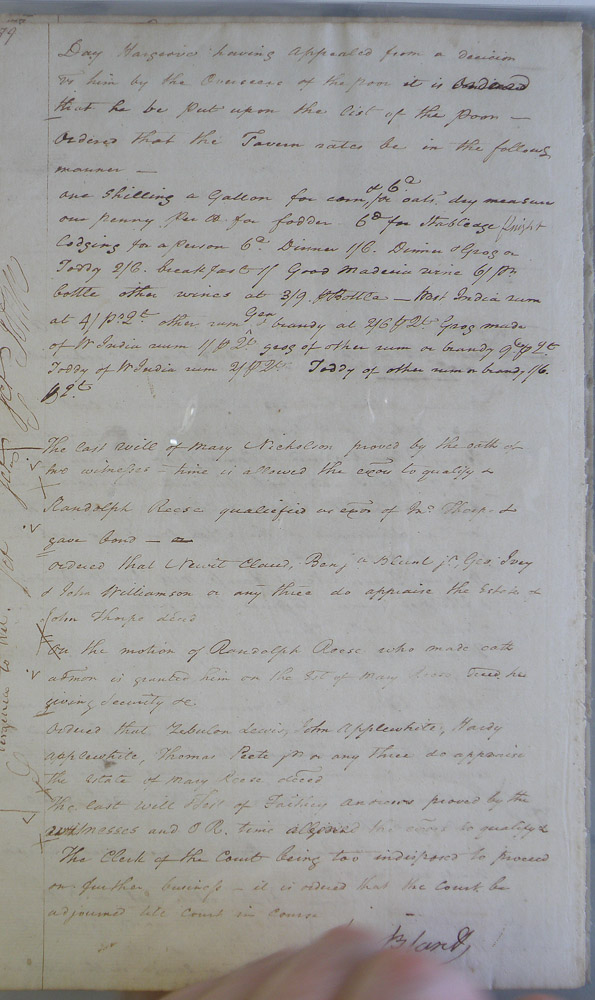 Day Hargrove having appealed from a decision
him by the Overseers of the poor it is Ordered
that he be put upon the list of the poor —
Ordered that the Tavern rates be in the following
manner —
one shilling a Gallon for corn & 6d for oats. day measure
one penny per lb for fodder 6d for Stableage
Lodging for a person 6d. Dinner 1/6. Dinner & Grog or
Toddy 2/6. breakfast 1/ Good Madeira wine 6/ pr
bottle other wines at 3/9 pBottle — West India rum
at 4/ pr Qt other rum Gen brandy at 2/6 p Qt Grog made
of W India rum 1/ p Qt grog of other rum or brandy 9d p Qt
Toddy of W India rum 2/ p Qt Toddy of other rum or brandy 1/6.
p Qt
The last will of Mary Nicholson proved by the oath of
two witnesses — time is allowed the exors to qualify &
Randolph Reese qualiefied as exor of Jno Thorpe &
gave bond —
ordered that Newit Claud, Benj a Blunt jr, Geo: Ivey
& John Williamson or any three do appraise the Estate of
John Thorpe decd
On the motion of Randolph Reese who made oath
admon is granted him on the Est of Mary Reese Decd he
giving Security &c.
Ordered that Zebulon Lewis, John Applewhite, Hardy
Applewhite, Thomas Peete jr or any three do appraise
the Estate of Mary Reese decd
the last will & Test of Andrews proved by the
witnesses and O R. time allowed the exors to qualify &
The Clerk of the Court being too indisposed to proceed
on further business — it is ordered that the Court be
adjourned till Court in Course